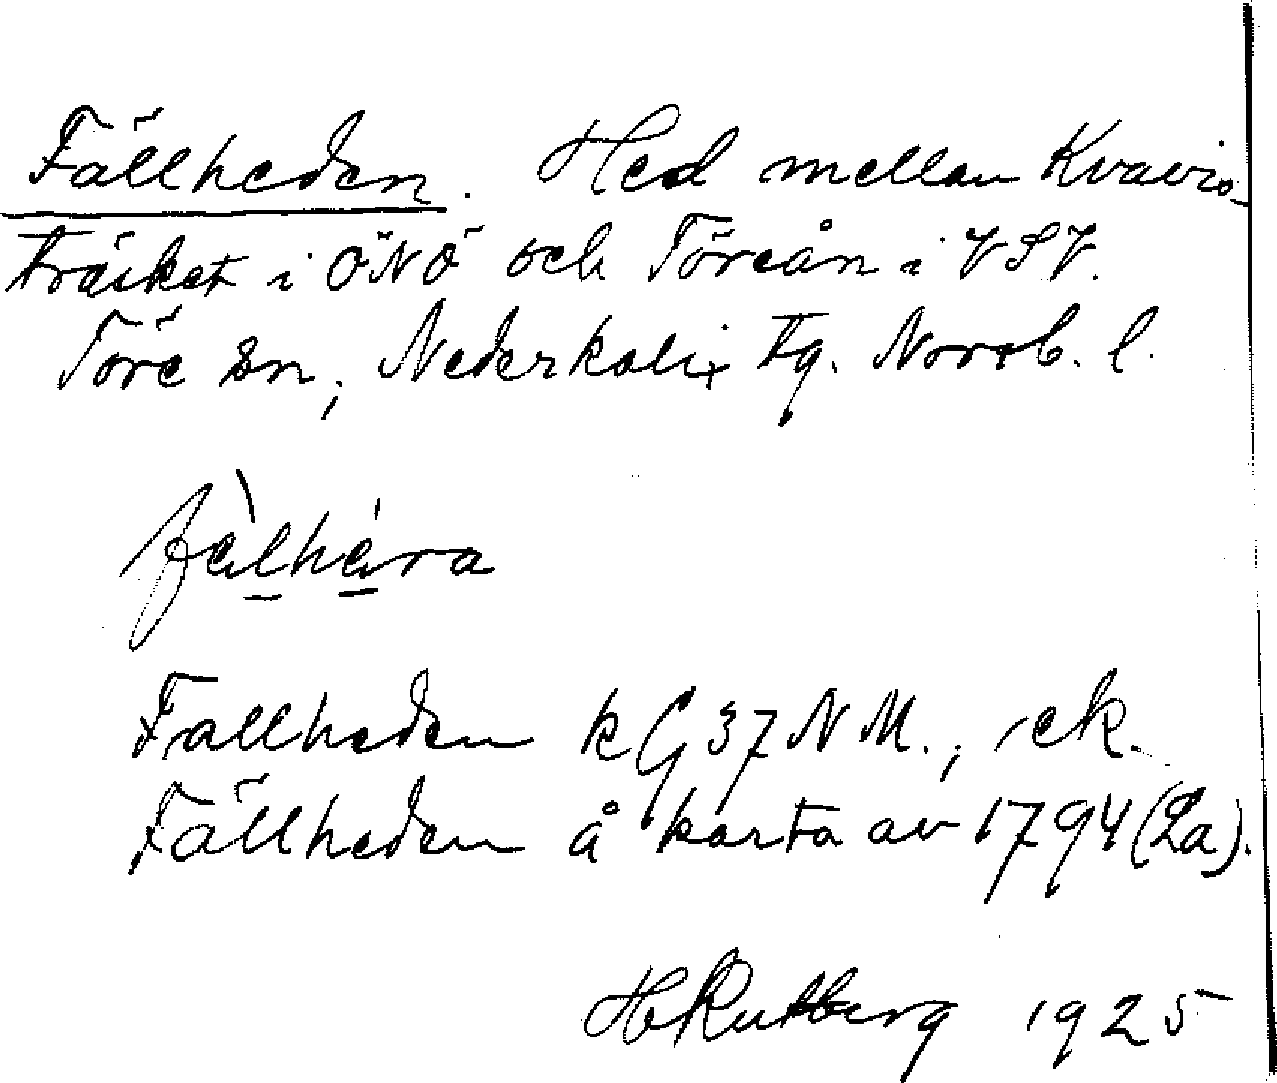 Fällheden. Hed mellan Kvavis-
träsket i ÖNÖ och Töreån i VSV.
Töre sn, Nederkalix tg. Norrb. l.
fèlhéra
Fallheden k G 37 N M., ek.
Fällheden å karta av 1794 (La).
H Rutberg 1925